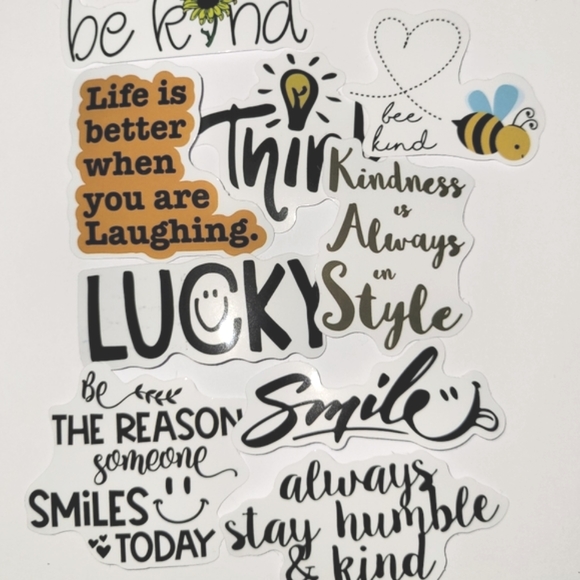 be kind
Life is
better
when
you are
Laughing.
Thin
bee
kind
Kindness
is
Always
en
Style
LUCKY
Be
THE REASON
someone
SMiLES
TODAY
Smile
always
stay humble
& kind